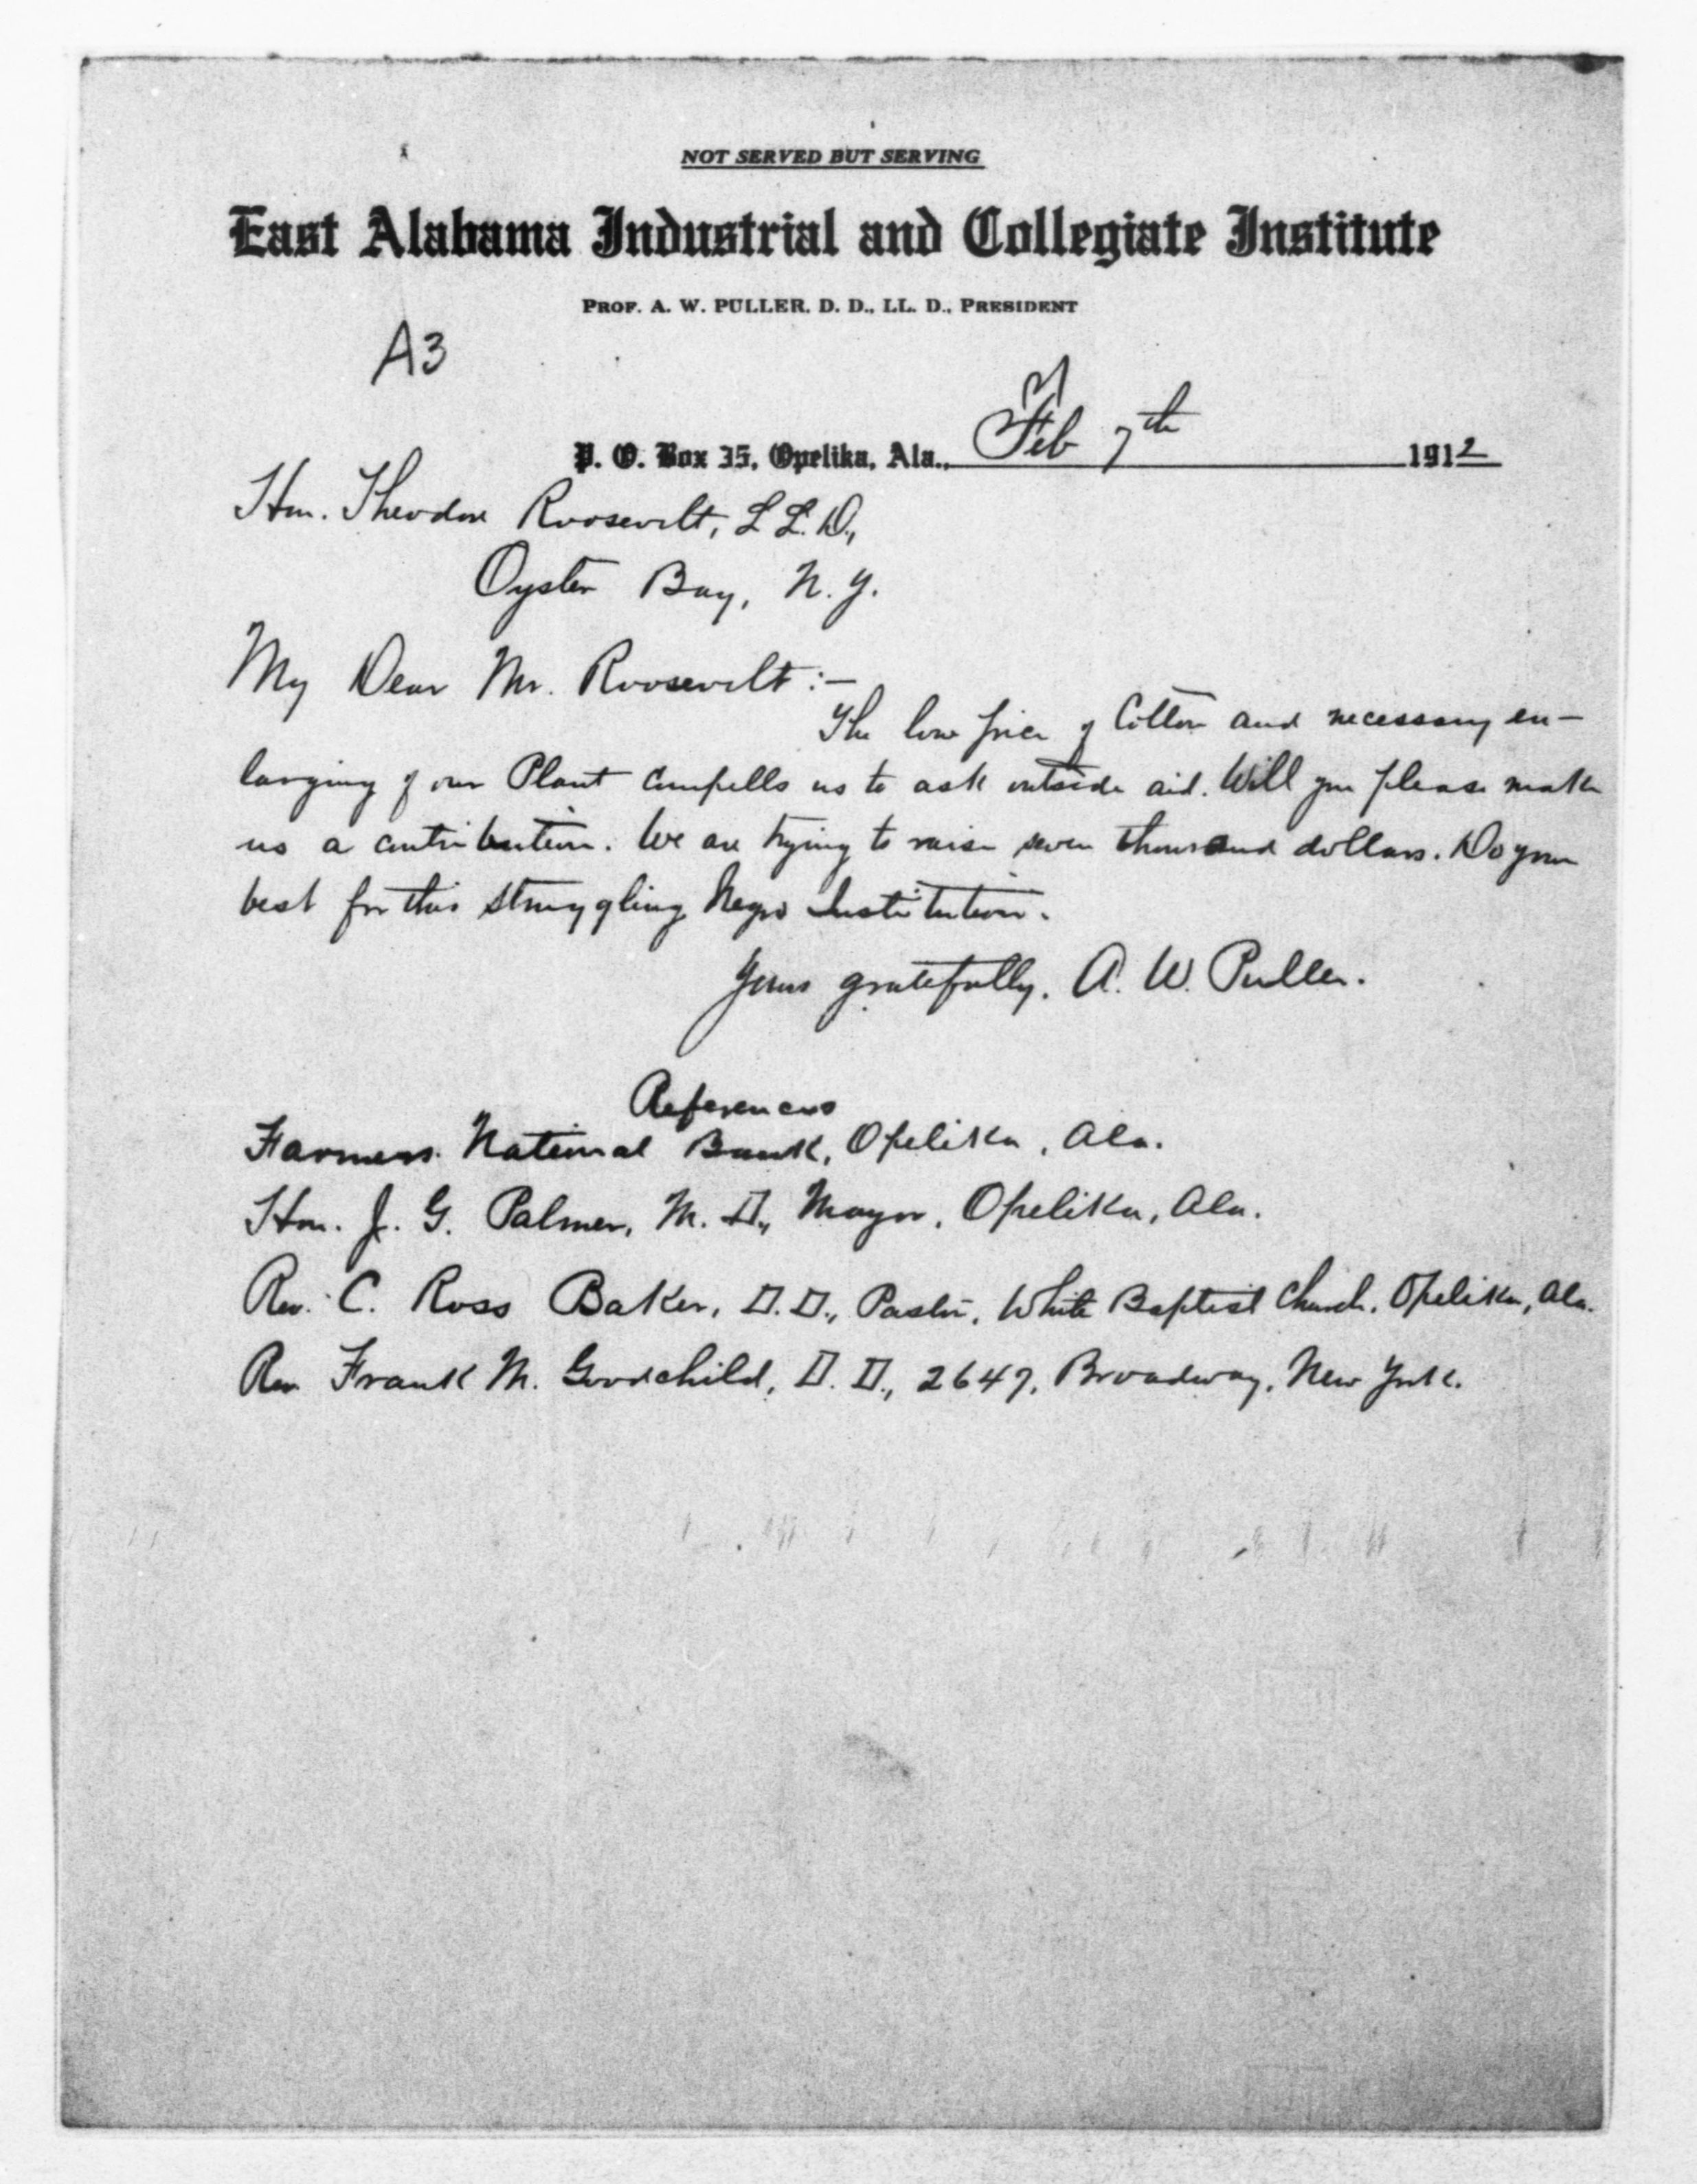 NOT SERVED BUT SERVING
East Alabama Industrial and Collegiate Institute
PROF. A. W. PULLER, D. D., LL. D., PRESIDENT
A3
P. O. Box 35, Opelika, Ala., Feb 7th 1912
Hon. Theodore Roosevelt, L L. D.,
Oyster Bay, N. Y.
My Dear Mr. Roosevelt:-
The low price of Cotton and necessary en-
larging of our Plant compells us to ask outside aid. Will you please make
us a contribution. We are trying to raise seven thousand dollars. Do your
best for this struggling Negro Institution.
Yours gratefully, A. W. Puller.
References
Farmers National Bank, Opelika, Ala.
Hon. J. G. Palmer, M. D., Mayor, Opelika, Ala.
Rev. C. Ross Baker, D. D., Pastor, White Baptist Church, Opelika, Ala.
Rev. Frank M. Goodchild, D. D., 2647, Broadway, New York.